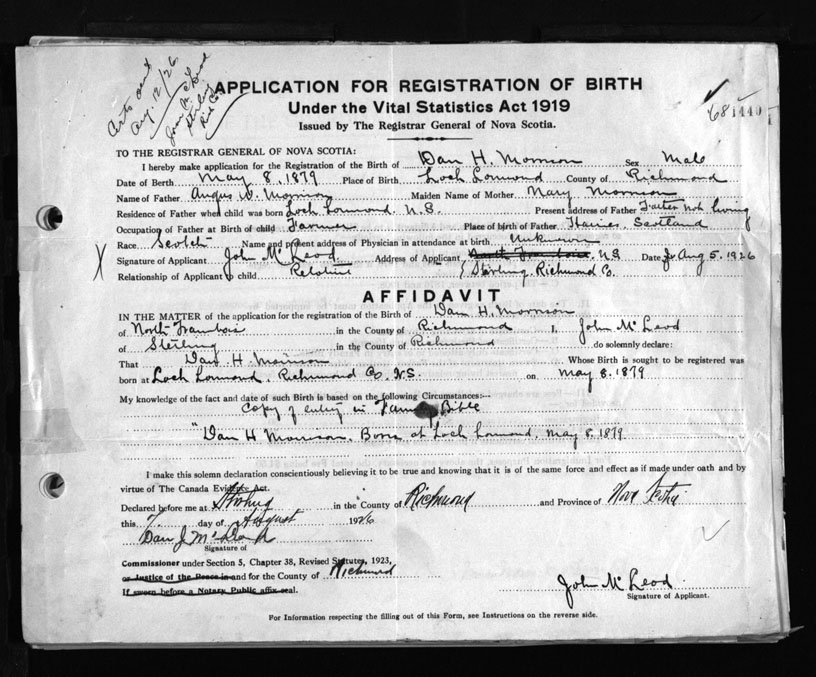 Aug. 12/26
John McLeod
Stirling
Rich Co.
APPLICATION FOR REGISTRATION OF BIRTH
Under the Vital Statistics Act 1919
Issued by The Registrar General of Nova Scotia.
TO THE REGISTRAR GENERAL OF NOVA SCOTIA:
I hereby make application for the Registration of the Birth of Dan H. Morrison Sex Male
Date of Berth May 8. 1879 Place of Birth Loch Lomond County of Richmond
Name of Father Angus W. Morrison Maiden Name of Mother Mary Morrison
Residence of Father when child was born Loch Lomond. N.S. Present address of Father Father not living
Occupation of Father at Birth of child Farmer Place of birth of Father Harris, Scotland
Race Scotch Name and present address of Physician in attendance at birth Unknown
Signature of Applicant John McLeod Address of Applicant North Framboise N.S Date Aug 5. 1926
Relationship of Applicant to child Relative Sterling. Richmond Co.
AFFIDAVIT
IN THE MATTER of the application for the registration of the Birth of Dan H. Morrison
of North Framboise in the County of Richmond I, John McLeod
of Sterling in the County of Richmond do solemnly declare:
That Dan H. Morrison Whose Birth is sought to be registered was
born at Loch Lomond, Richmond Co. N.S. on May 8. 1879
My knowledge of the fact and date of such Birth is based on the following Circumstances:--
Copy of entry in Family Bible
"Dan H Morrison. Born at Loch Lomond, May 8. 1879.
I make this solemn declaration conscientiously believing it to be true and knowing that it is of the same force and effect as if made under oath and by
virtue of The Canada Evidence Act.
Declared before me at Stirling in the County of Richmond and Province of Nova Scotia
this 7 day of August 1926
Dan J. McLeod
Signature of
Commissioner under Section 5, Chapter 38, Revised Statutes, 1923,
or Justice of the Peace in and for the County of Richmond
If sworn before a Notary Public affix seal.
John McLeod
Signature of Applicant.
For Information respecting the filling out of this Form, see Instructions on the reverse side.